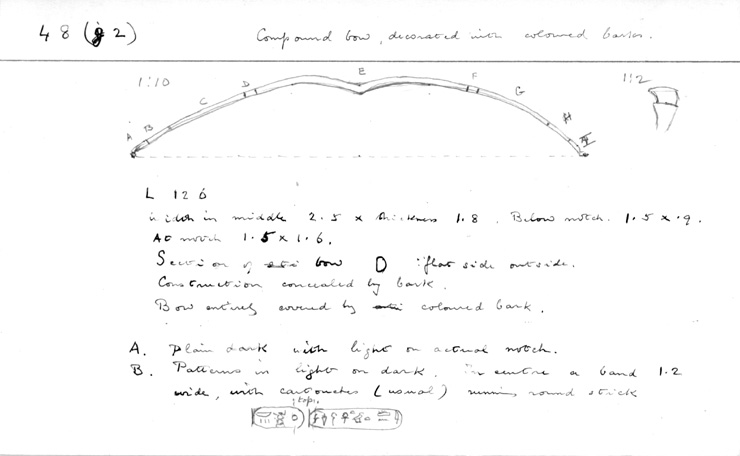 48 (g 2) Compound bow, decorated with coloured barks.
1:10 A B C D E F G H 1:2
L 126
Width in middle 2.5 x thickness 1.8. Below notch. 1.5 x .9.
At notch 1.5 x 1.6.
Section of bow D flat side outside.
Construction concealed by bark.
Bow entirely covered by coloured bark.
A. Plain dark with light on actual notch.
B. Patterns in light on dark. In centre a band 1.2
wide, with cartouches (usual) running round stick
top.